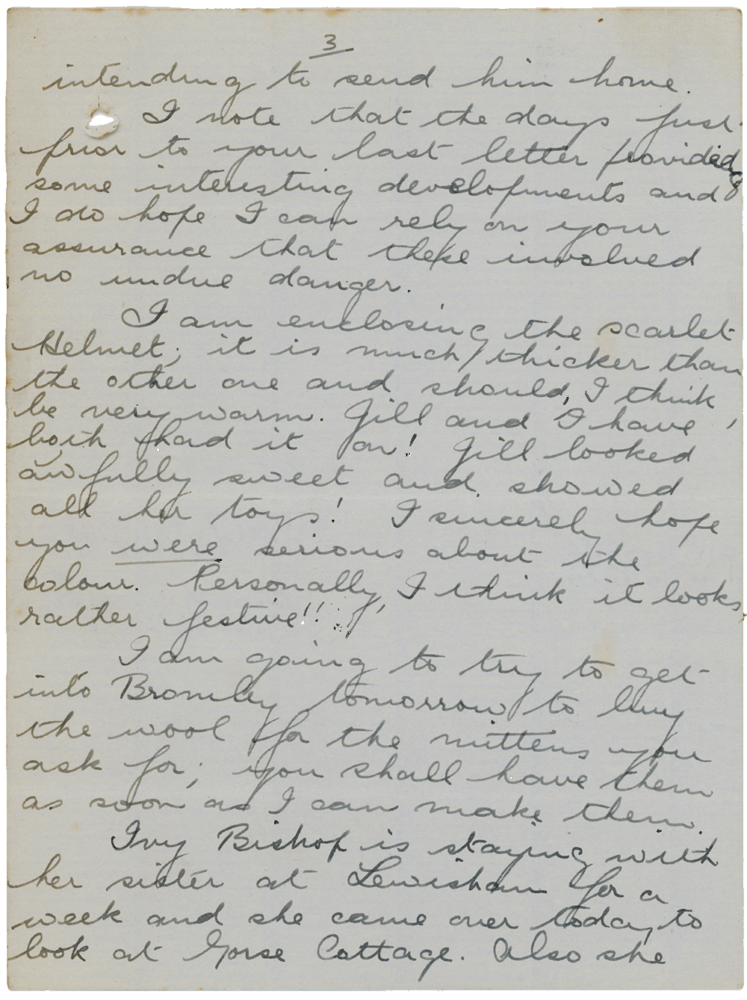 3
intending to send him home.
I note that the days just
prior to your last letter provided
some interesting developments and
I do hope I can rely on your
assurance that these involved
no undue danger.
I am enclosing the scarlet
Helmet; it is much thicker than
the other one and should, I think,
be very warm. Gill and I have
both had it on! Gill looked
awfully sweet and showed
all her toys! I sincerely hope
you were serious about the
colour. Personally, I think it looks
rather festive!!
I am going to try to get
into Bromley tomorrow to buy
the wool for the mittens you
ask for; you shall have them
as soon as I can make them.
Ivy Bishop is staying with
her sister at Lewisham for a
week and she came over today to
look at Gorse Cottage. Also she